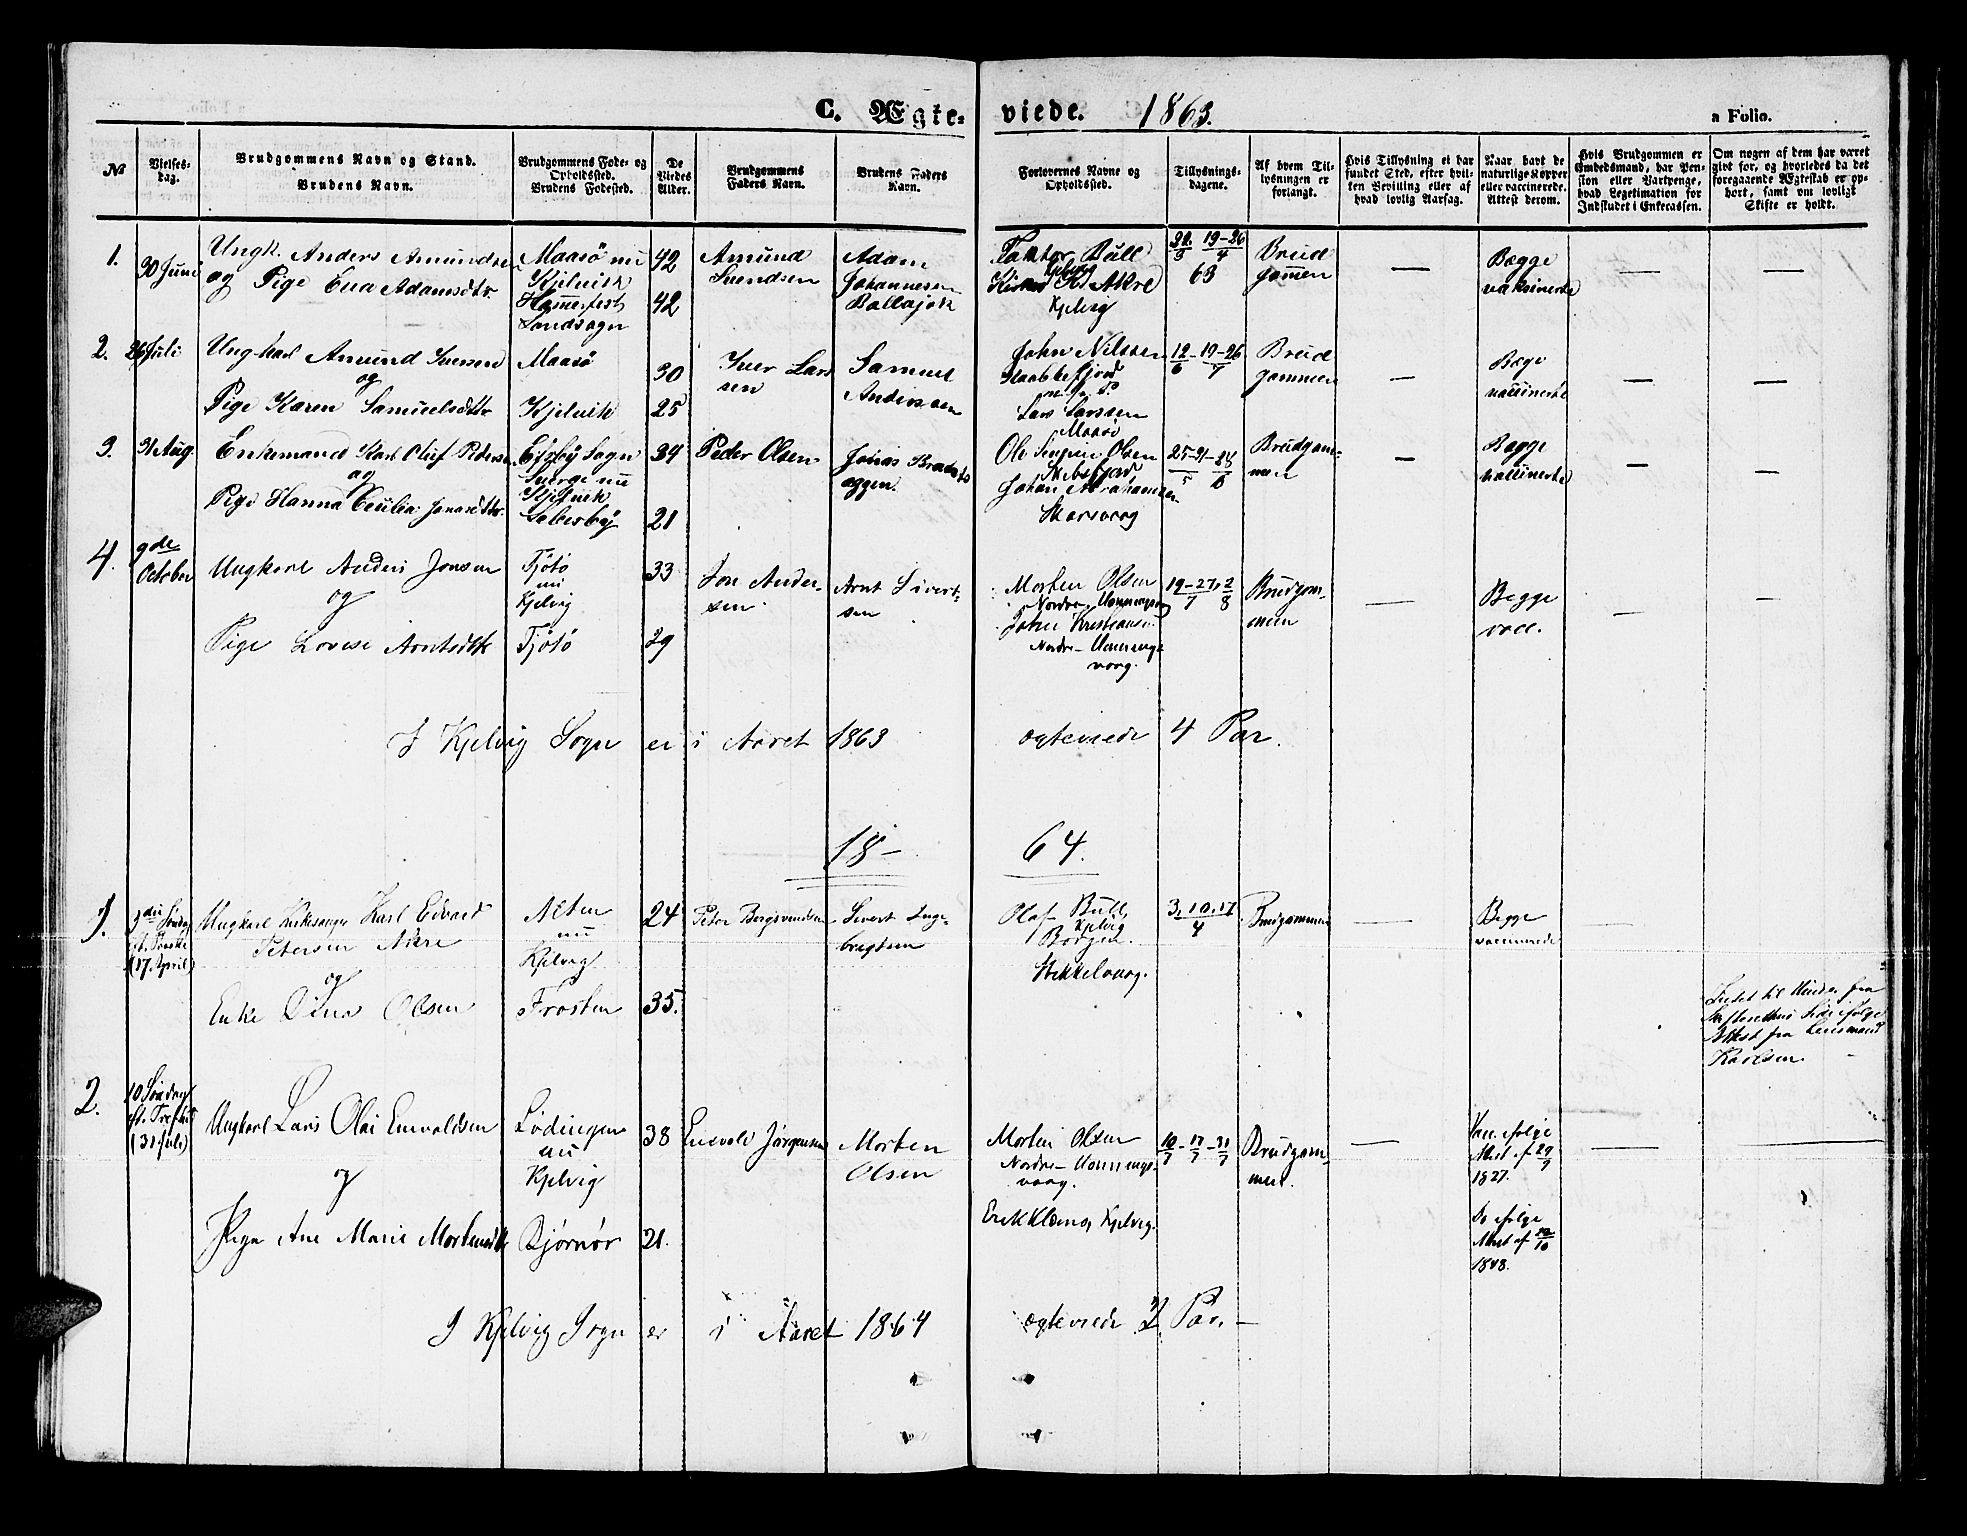 C. Ægte- viede. 1863. a Folio.
№
Vielses-
dag.
Brudgommens Navn og Stand.
Brudens Navn.
Brudgommens Føde- og
Opholdssted.
Brudens Fødested.
De
Viedes
Alder.
Brudgommens
Faders Navn.
Brudens Faders
Navn.
Forlovernes Navne og
Opholdssted.
Tillysnings-
dagene.
Af hvem Til-
lysningen er
forlangt.
Hvis Tillysning ei har
fundet Sted, efter hvil-
ken Bevilling eller af
hvad lovlig Aarsag.
Naar havt de
naturlige Kopper
eller vaccinerede.
Attest derom.
Hvis Brudgommen er
Embedsmand, har Pen-
sion eller Vartpenge,
hvad Legitimation for
Indskudet i Enkecassen.
Om nogen af dem har været
givt før, og hvorledes da det
foregaaende Ægteskab er op-
hørt, samt om lovligt
Skifte er holdt.
1.
30 Juni
Ungk. Anders Amundsen
og Pige Eva Adamsdtr
Maasø nu
Kjelvik
Hammerfest
Landsogn
42
42
Amund
Svendsen
Adam
Johannesen
Ballajok
Faktor Bull
Kjelvig
K. Akre
Kjelvig
19-26
4
63
Brud
gommen
—
Begge
vaksinerte
—
—
2.
26 Juli
Ungkarl Amund Iversen
og
Pige Karen Samuelsdtr
Maasø
Kjelvik
30
25
Iver Lars
sen
Samuel
Anderssen
John Nilssen
Lars Larssen
Maasø
12-19-26
7
Brud
gommen
—
Begge
vaccinerte
—
—
3.
31 Aug.
Enkemand Karl Oluf Pedersen
og
Pige Hanna Cecilia Jonasdtr.
Sogn
Sverge nu
Kjelvik
34
21
Peder Olsen
Jonas
Ole Olsen
Johan Abrahamsen
Skarsvaag
Brudgom-
men
—
Begge
vaccinerte
—
—
4.
9de
October
Ungkarl Anders Jonsen
og
Pige Lovise Arntsdtr
Tjøtø
nu
Kjelvig
Tjøtø
33
29
Jon Ander-
sen
Arnt Sivert-
sen
Morten Olsen
Nordre-Honningsvaag
Johan Kristians.
Nordre-Honnings-
vaag.
19-27, 2
7 8
Brudgom-
men
—
Begge
vacc.
—
—
I Kjelvig Sogn er i Aaret 1863 ægteviede 4 Par.
18- 64.
1.
3die Søndag
(17 April)
Ungkarl Kirkesanger Karl Edvard
Petersen Akre
og
Enke Dina Olsen
Alten
nu
Kjelvig
Frosten
24
35.
Peter
Sivert Inge-
brigtsen
Olaf Bull,
Kjelvig
Borgen.
Stikkelvaag.
3, 10, 17
4
Brudgommen
—
Begge
vaccinerede
—
fra
Attest fra Lensmand
Karlsen.
2.
10 Søndag
(31 Juli)
Ungkarl Lars Olai Enevoldsen
og
Pige Ane Marie Mortensdtr
Lødingen
nu
Kjelvig
Bjørnør
38
21.
Enevold Jørgensen
Morten
Olsen
Morten Olsen
Nordre-Honnings-
vaag.
Erik Klæbo, Kjelvig.
10 - 17 - 31
7 7 7
Brudgom-
men.
—
Vac. ifølge
Attest af 29
9
1827.
Do ifølge
Attest af 12
10
1848.
—
I Kjelvig Sogn er i Aaret 1864 ægteviede 2 Par. —